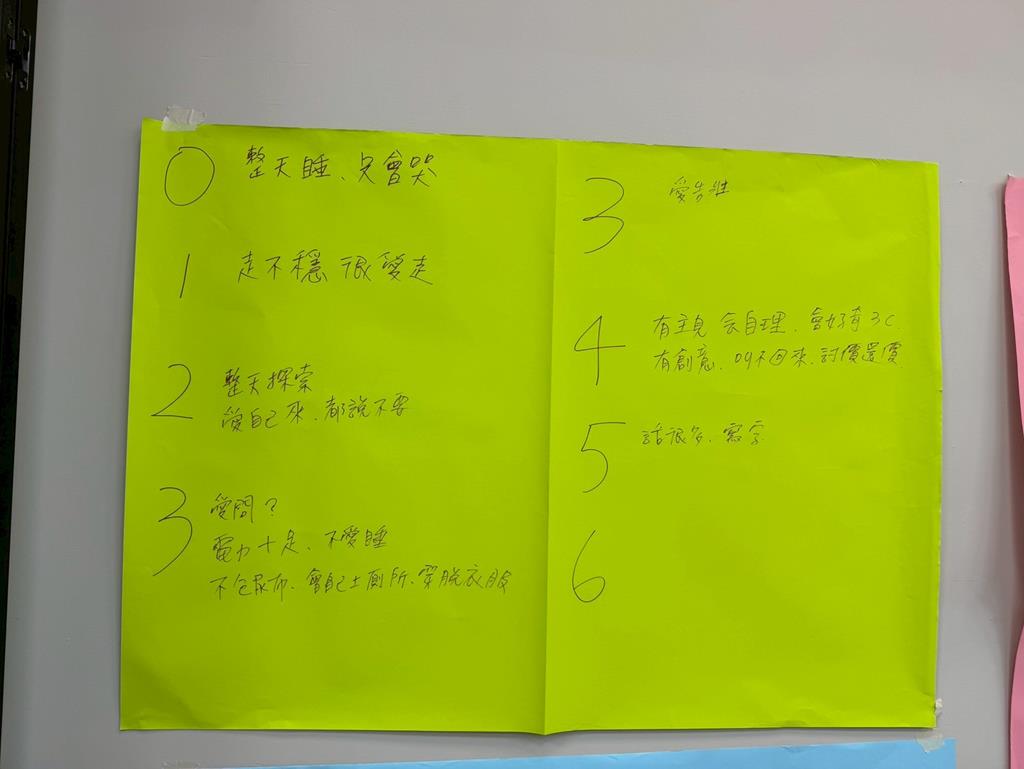 0 整天睡、只會哭
1 走不穩 很愛走
2 整天探索
愛自己來、都說不要
3 愛問?
電力十足、不愛睡
不包尿布、會自己上廁所、穿脫衣服
3 愛告狀
4 有主見 会自理、會好奇3C
有創意、叫不回來、討價還價
5 話很多、寫字
6